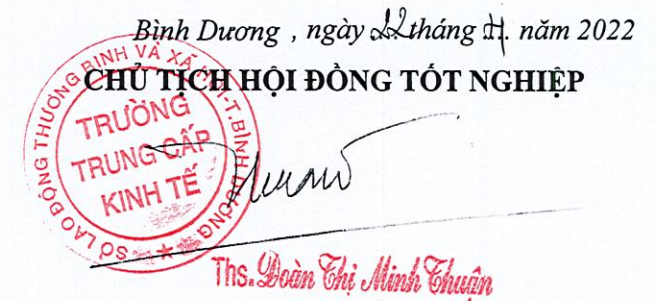 Bình Dương , ngày 22 tháng 11. năm 2022
CHỦ TỊCH HỘI ĐỒNG TỐT NGHIỆP
SỞ LAO ĐỘNG THƯƠNG BINH VÀ XÃ HỘI-T.BÌNH DƯƠNG
TRƯỜNG
TRUNG CẤP
KINH TẾ
Ths. Đoàn Thị Minh Thuận